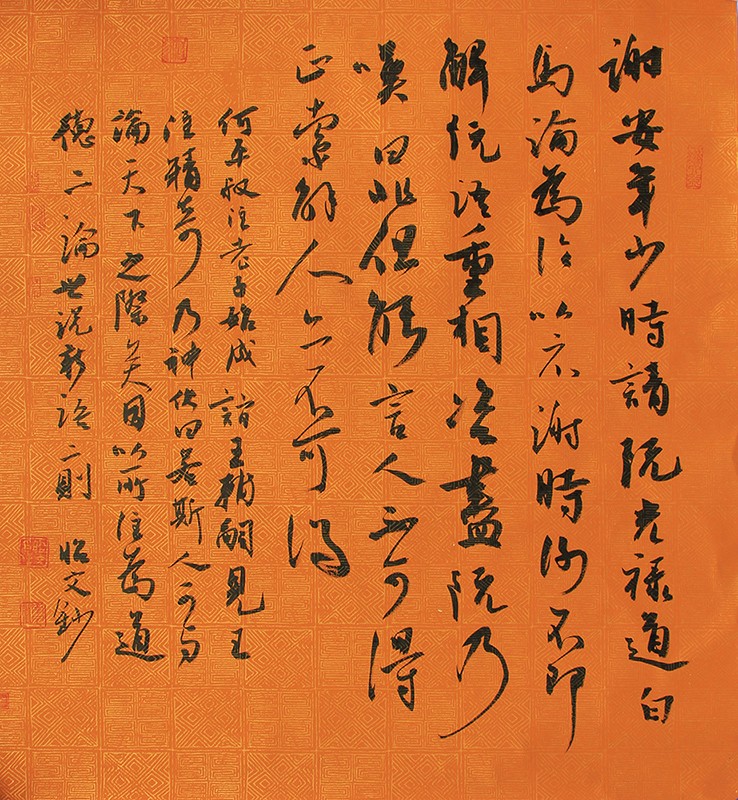 謝安年少時請阮光祿道白
馬論為論以示謝時謝不即
解阮語重相咨盡阮乃
嘆曰非但能言人不可得
正索解人亦不可得
何平叔注老子始成詣王輔嗣見王
注精奇乃神伏曰若斯人可与
論天下之際矣因以所注為道
德二論世說新語二則 昭文鈔